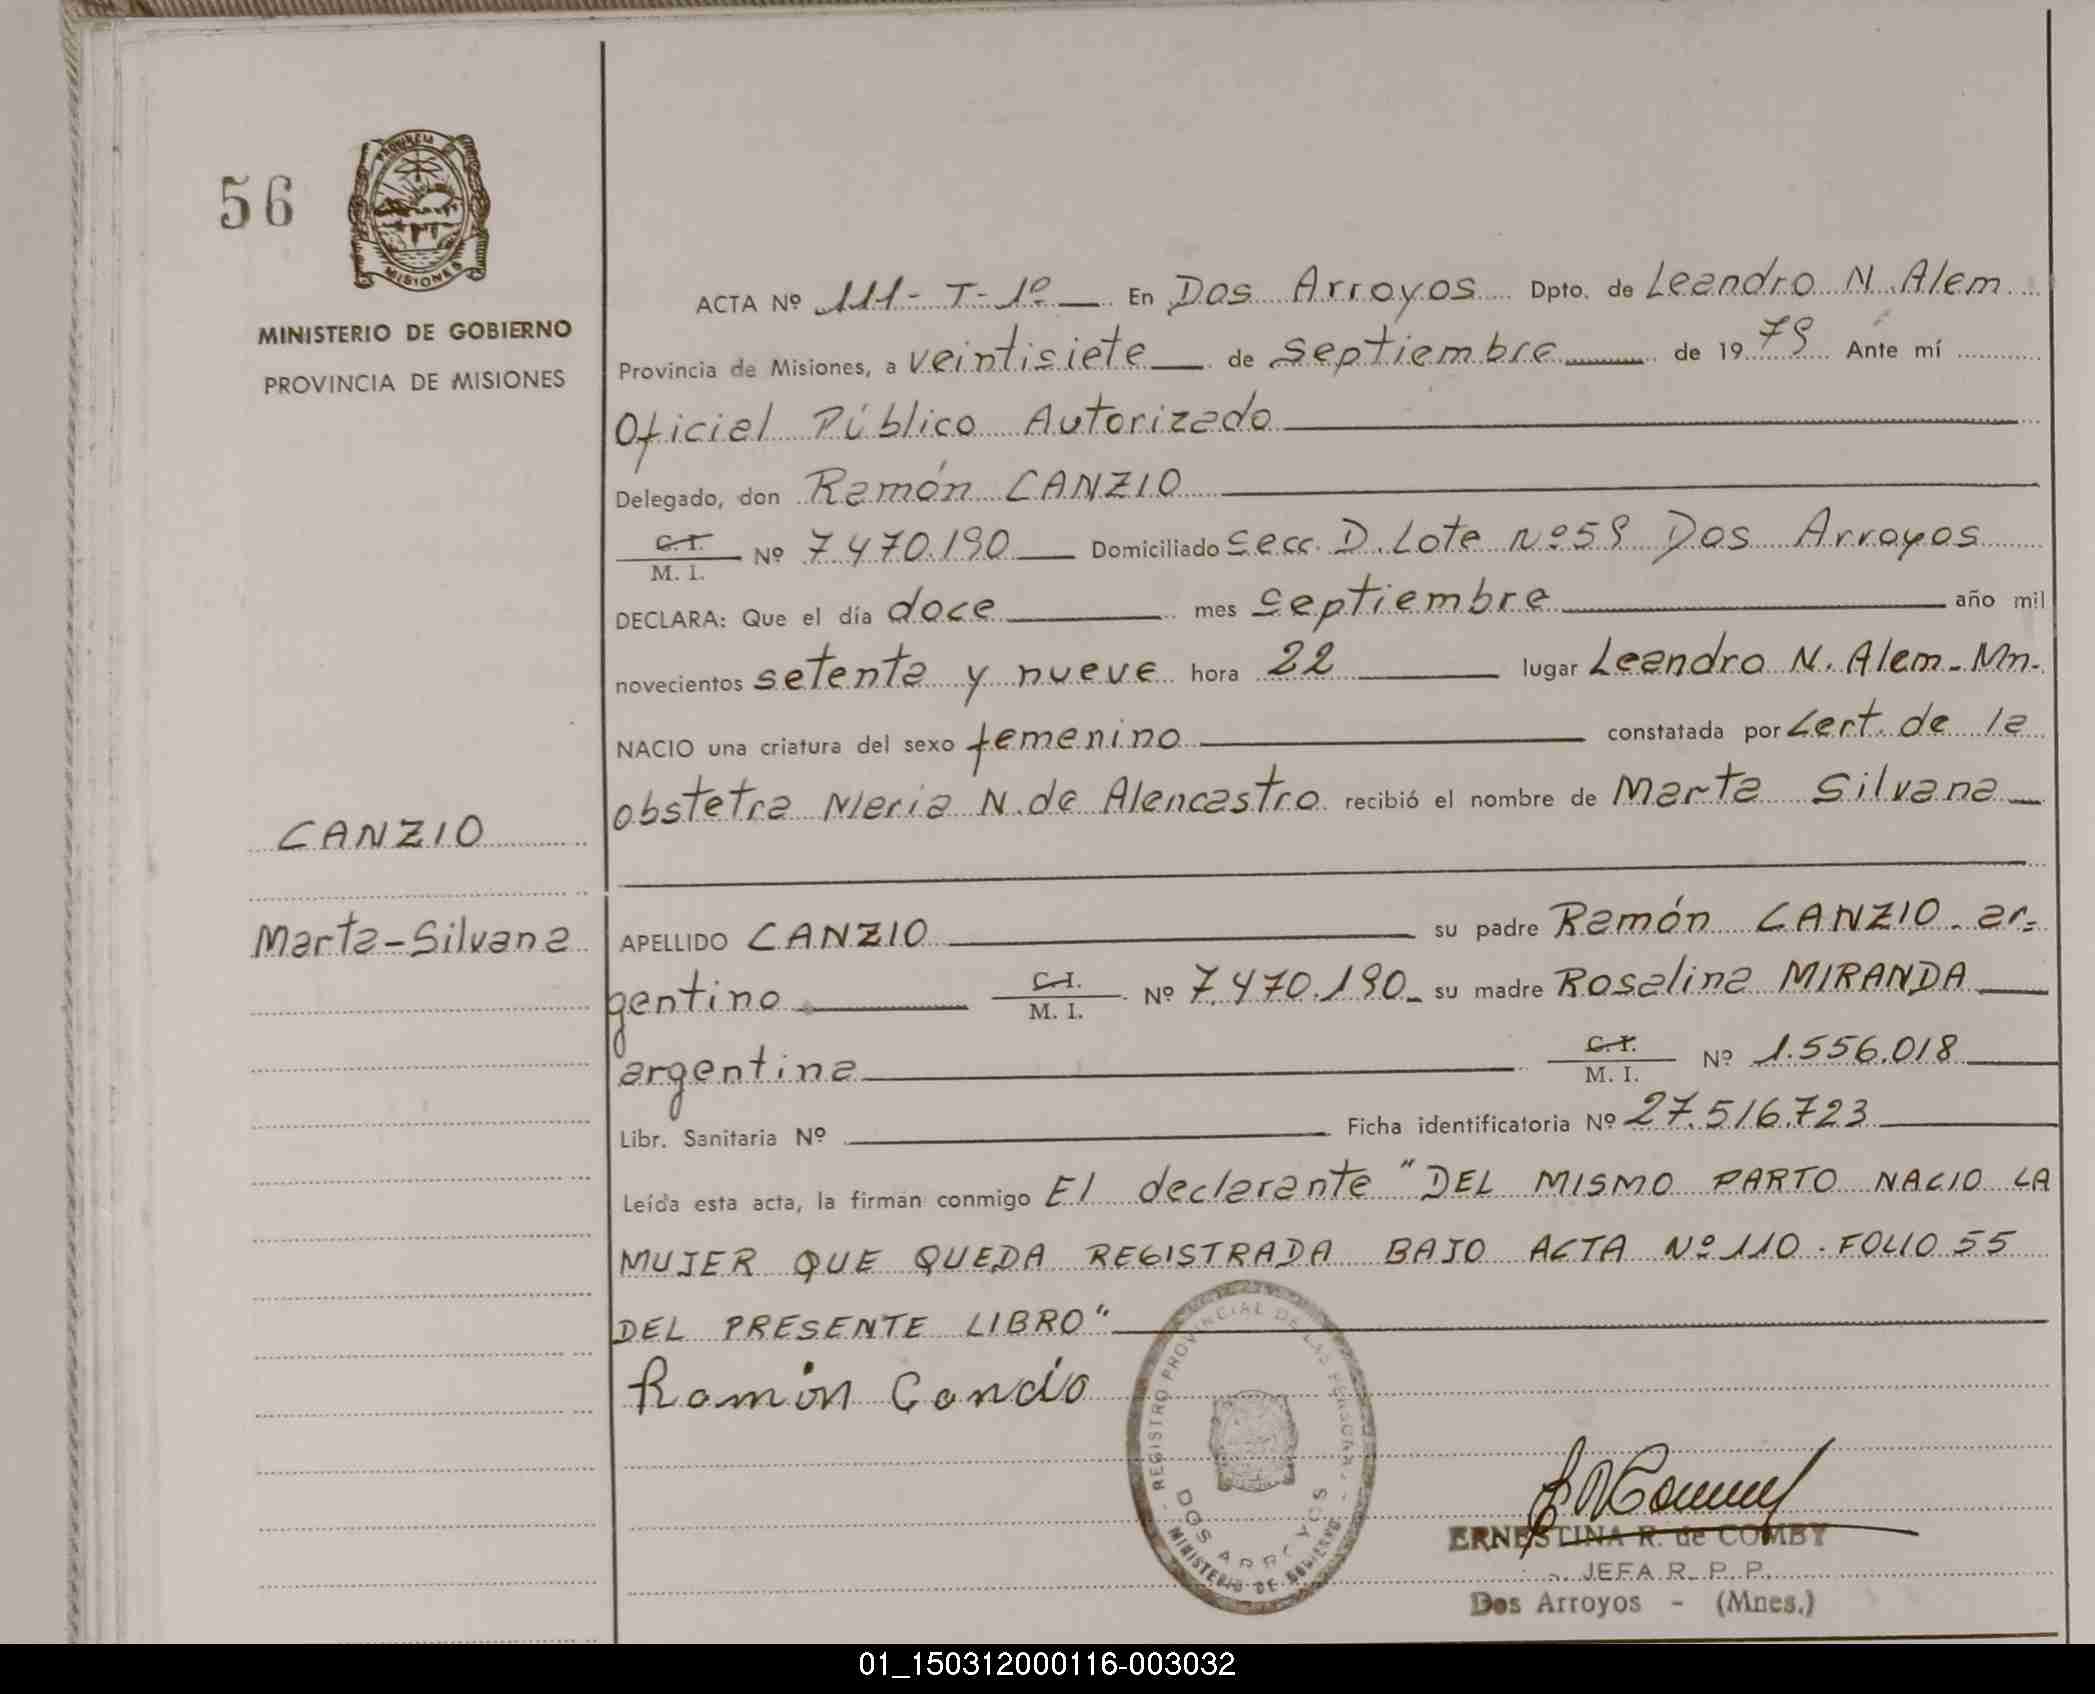 56
PROVINCIA
MISIONES
MINISTERIO DE GOBIERNO
PROVINCIA DE MISIONES
ACTA Nº 111- T- 1º En Dos Arroyos Dpto. de Leandro N. Alem
Provincia de Misiones, a veintisiete de septiembre de 1979 Ante mí
Oficial Público Autorizado
Delegado, don Ramón CANZIO
C.I. M. I. Nº 7.470.190 Domiciliado Secc. D. Lote Nº 59 Dos Arroyos
DECLARA: Que el día doce mes septiembre año mil
novecientos setenta y nueve hora 22 lugar Leandro N. Alem-Mn-
NACIO una criatura del sexo femenino constatada por Cert. de la
obstetra Neria N. de Alencastro recibió el nombre de Marta Silvana
CANZIO
Marta-Silvana
APELLIDO CANZIO su padre Ramón CANZIO - ar=
gentino C.I. M. I. Nº 7.470.190- su madre Rosalina MIRANDA
argentina C.I. M. I. Nº 1.556.018
Libr. Sanitaria Nº Ficha identificatoria Nº 27.516.723
Leída esta acta, la firman conmigo El declarante "DEL MISMO PARTO NACIO LA
MUJER QUE QUEDA REGISTRADA BAJO ACTA Nº 110. FOLIO 55
DEL PRESENTE LIBRO"
Ramón Concio
REGISTRO PROVINCIAL DE LAS PERSONAS
DOS ARROYOS
MINISTERIO DE GOBIERNO
ERNESTINA R. de COMBY
JEFA R. P. P.
Dos Arroyos - (Mnes.)
01_150312000116-003032